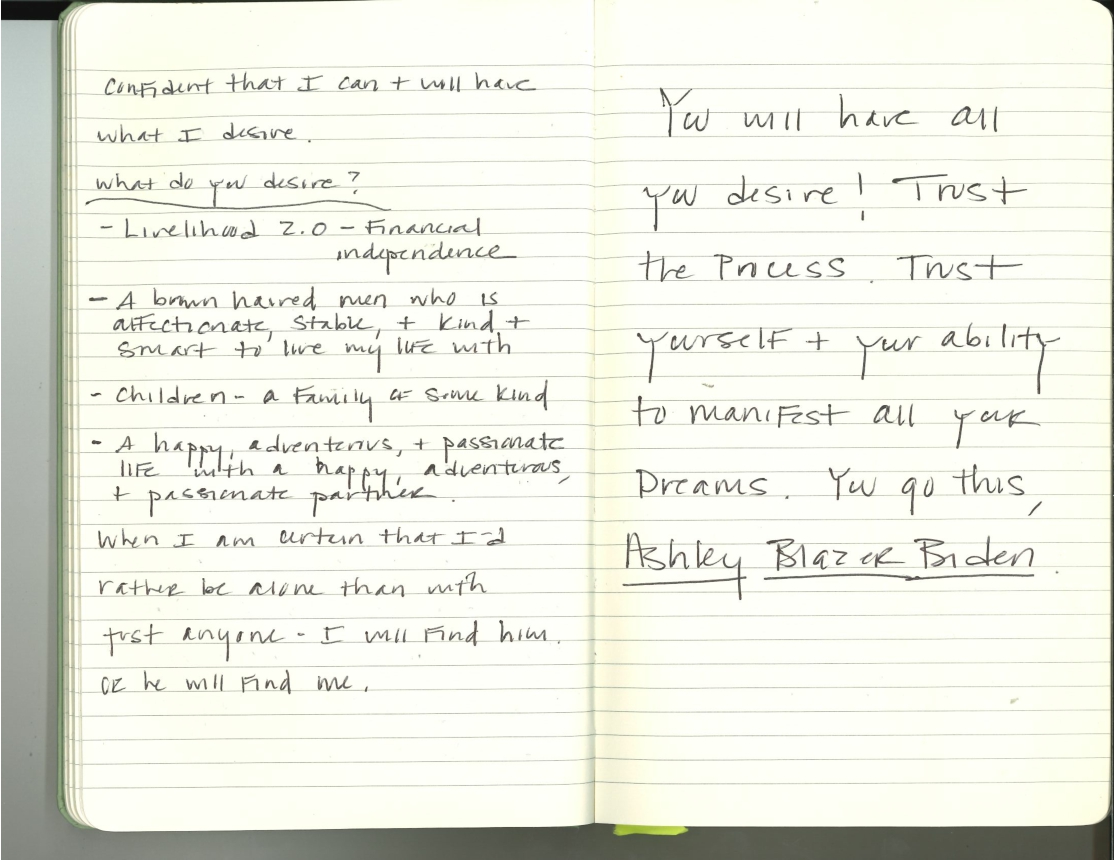 confident that I can + will have
what I desire.
what do you desire?
- Livelihood 2.0 - Financial
independence
- A brown haired men who is
affectionate, stable, + kind +
smart to live my life with
- Children - a family of some kind
- A happy, adventurous, + passionate
life with a happy, adventurous,
+ passionate partner.
When I am certain that I'd
rather be alone than with
just anyone - I will find him.
or he will find me.
You will have all
you desire! Trust
the Process. Trust
yourself + your ability
to manifest all your
Dreams. You go this,
Ashley Blazer Biden.